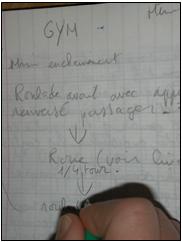 GYM
Mon enchainement
Roulade avant avec app
renversé passager.
Roue (voir li
1/4 tour.
roul